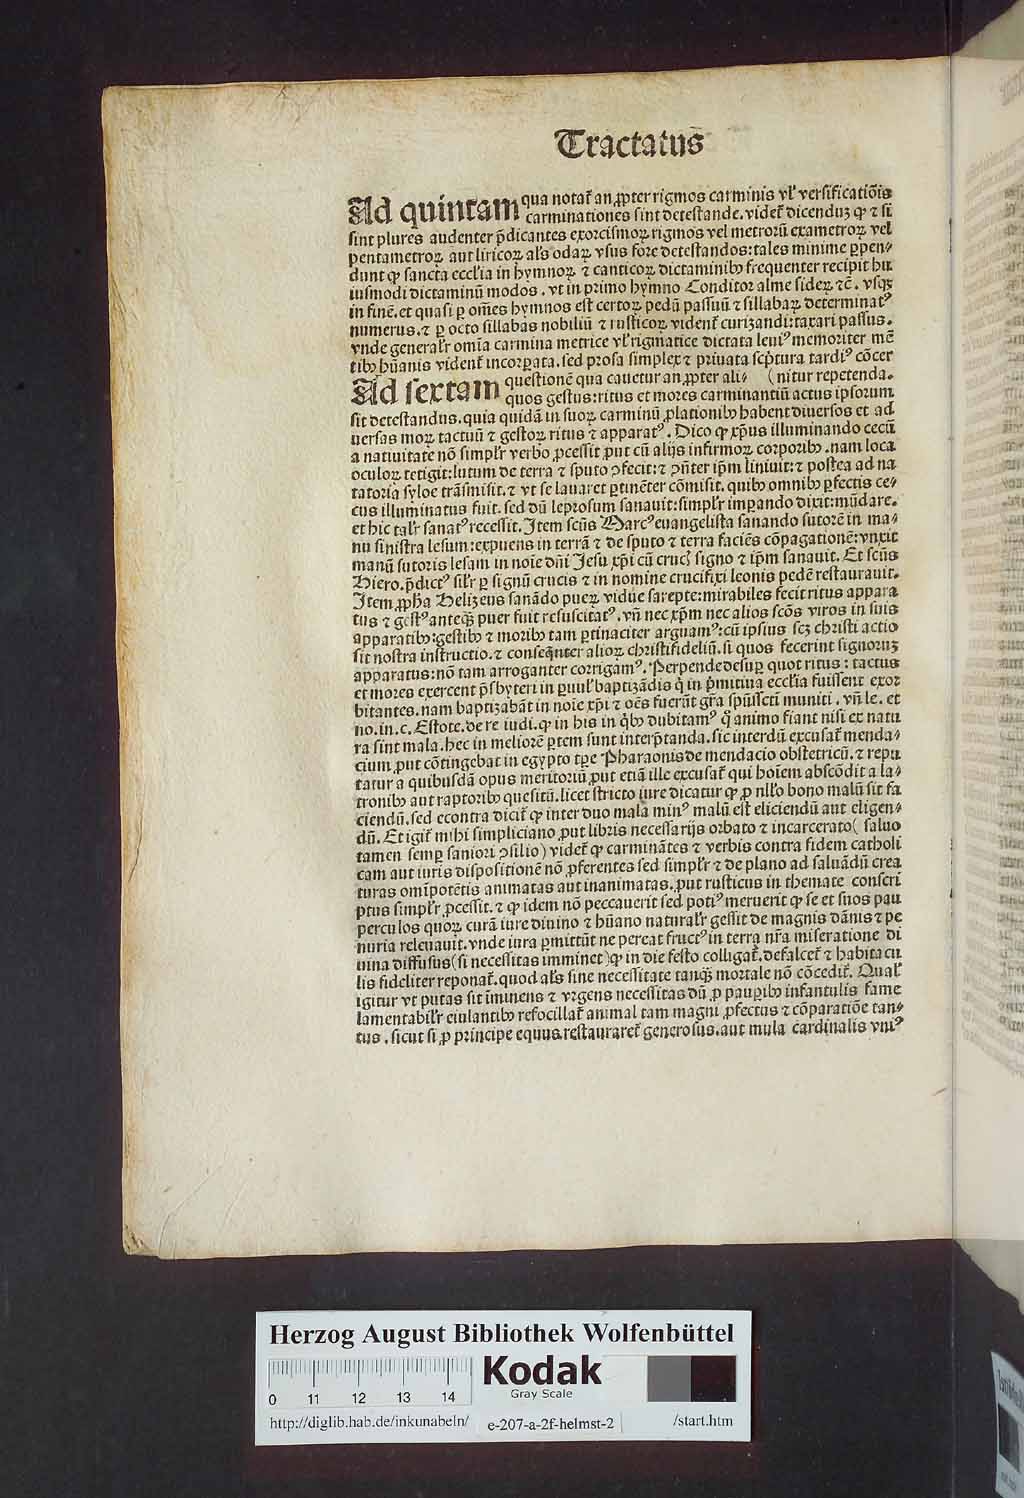 Tractatus
Ad quintam qua notat᷑ an ꝓpter rigmos carminis vl' versificatiōis
carminationes sint detestande. videt᷑ dicenduꝫ ꝙ ⁊ si
sint plures audenter p̄dicantes exorcismoꝝ rigmos vel metrorū exametroꝝ vel
pentametroꝝ aut liricoꝝ al's odaꝝ vsus fore detestandos: tales minime ꝑpen⸗
dunt ꝙ sancta eccl'ia in hymnoꝝ ⁊ canticoꝝ dictaminibꝰ frequenter recipit hu
iusmodi dictaminū modos. vt in primo hymno Conditor alme sideꝝ ⁊c̄. vsqꝫ
in finē. et quasi ꝑ om̄es hymnos est certoꝝ pedū passuū ⁊ sillabaꝝ determinatꝰ
numerus. ⁊ ꝑ octo sillabas nobiliū ⁊ rusticoꝝ vident᷑ curizandi: taxari passus.
vnde general'r om̄ia carmina metrice vl' rigmatice dictata leniꝰ memoriter mē
tibꝰ hūanis vident᷑ incorꝑata. sed prosa simplex ⁊ priuata scp̄tura tardiꝰ cōcer
Ad sextam questionē qua cauetur an ꝓpter ali⸗ (nitur repetenda.
quos gestus: ritus et mores carminantiū actus ipsorum
sit detestandus. quia quidā in suoꝝ carminū ꝓlationibꝰ habent diuersos et ad
uersas moꝝ tactuū ⁊ gestoꝝ ritus ⁊ apparatꝰ. Dico ꝙ xp̄us illuminando cecū
a natiuitate nō simpl'r verbo ꝓcessit ꝓut cū alijs infirmoꝝ corporibꝰ. nam loca
oculoꝝ tetigit: lutum de terra ⁊ sputo ↄfecit: ⁊ ↄn̄ter ip̄m liniuit: ⁊ postea ad na
tatoria syloe trāsmisit. ⁊ vt se lauaret ꝑtinēter cōmisit. quibꝰ omnibꝰ ꝑfectis ce⸗
cus illuminatus fuit. sed dū leprosum sanauit: simpl'r imꝑando dixit: mūdare.
et hic tal'r sanatꝰ recessit. Item scūs Marcꝰ euangelista sanando sutorē in ma⸗
nu sinistra lesum: expuens in terrā ⁊ de sputo ⁊ terra faciēs cōpagationē: vnxit
manū sutoris lesam in noīe dn̄i Jesu xp̄i cū crucꝭ signo ⁊ ip̄m sanauit. Et scūs
Hiero. p̄dictꝰ sil'r ꝑ signū crucis ⁊ in nomine crucifixi leonis pedē restaurauit.
Item ꝓpha Helizeus sanādo pueꝝ vidue sarepte: mirabiles fecit ritus appara
tus ⁊ gestꝰ anteqꝫ puer fuit resuscitatꝰ. vn̄ nec xp̄m nec alios scōs viros in suis
apparatibꝰ: gestibꝰ ⁊ moribꝰ tam ꝑtinaciter arguamꝰ: cū ipsius scꝫ christi actio
sit nostra instructio. ⁊ conseq̄nter alioꝝ christifideliū. si quos fecerint signoruꝫ
apparatus: nō tam arroganter corrigamꝰ. Perpende desuꝑ quot ritus: tactus
et mores exercent p̄sbyteri in ꝑuul' baptizādis q̇ in p̄mitiua eccl'ia fuissent exor
bitantes. nam baptizabāt in noīe xp̄i ⁊ oēs fuerāt gr̄a sp̄ūssct̄i muniti. vn̄ le. et
no. in. c. Estote. de re iudi. ꝙ in his in q̇bꝰ dubitamꝰ q̊ animo fiant nisi ex natu
ra sint mala. hec in meliorē ꝑtem sunt interp̄tanda. sic interdū excusat᷑ menda⸗
cium ꝓut cōtingebat in egypto tꝑe Pharaonis de mendacio obstetricū. ⁊ repu
tatur a quibusdā opus meritoriū ꝓut etiā ille excusat᷑ qui hoīem abscōdit a la⸗
tronibꝰ aut raptoribꝰ quesitū. licet stricto iure dicatur ꝙ ꝓ nl'lo bono malū sit fa
ciendū. sed econtra dicit᷑ ꝙ inter duo mala minꝰ malū est eliciendū aut eligen⸗
dū. Et igit᷑ mihi simpliciano ꝓut libris necessarijs orbato ⁊ incarcerato (saluo
tamen semꝑ saniori ↄsilio) videt᷑ ꝙ carminātes ⁊ verbis contra fidem catholi
cam aut iuris dispositionē nō ꝓferentes sed simpl'r ⁊ de plano ad saluādū crea
turas omīpotētis animatas aut inanimatas. ꝓut rusticus in themate conscri
ptus simpl'r ꝓcessit. ⁊ ꝙ idem nō peccauerit sed potiꝰ meruerit ꝙ se et suos pau
perculos quoꝝ curā iure diuino ⁊ hūano natural'r gessit de magnis dānis ⁊ pe
nuria releuauit. vnde iura ꝑmittūt ne pereat fructꝰ in terra nr̄a miseratione di
uina diffusus (si necessitas imminet) ꝙ in die festo colligat᷑. defalcet᷑ ⁊ habitacu
lis fideliter reponat᷑. quod al's sine necessitate tanqꝫ mortale nō cōcedit᷑. Qual'
igitur vt putas sit īminens ⁊ vrgens necessitas dū ꝓ pauꝑibꝰ infantulis fame
lamentabil'r eiulantibꝰ refocillat᷑ animal tam magni ꝓfectus ⁊ cōparatiōe tan⸗
tus. sicut si ꝓ principe equus restauraret᷑ generosus. aut mula cardinalis vniꝰ
Herzog August Bibliothek Wolfenbüttel
Kodak
Gray Scale
0 11 12 13 14
http://diglib.hab.de/inkunabeln/ e-207-a-2f-helmst-2 /start.htm